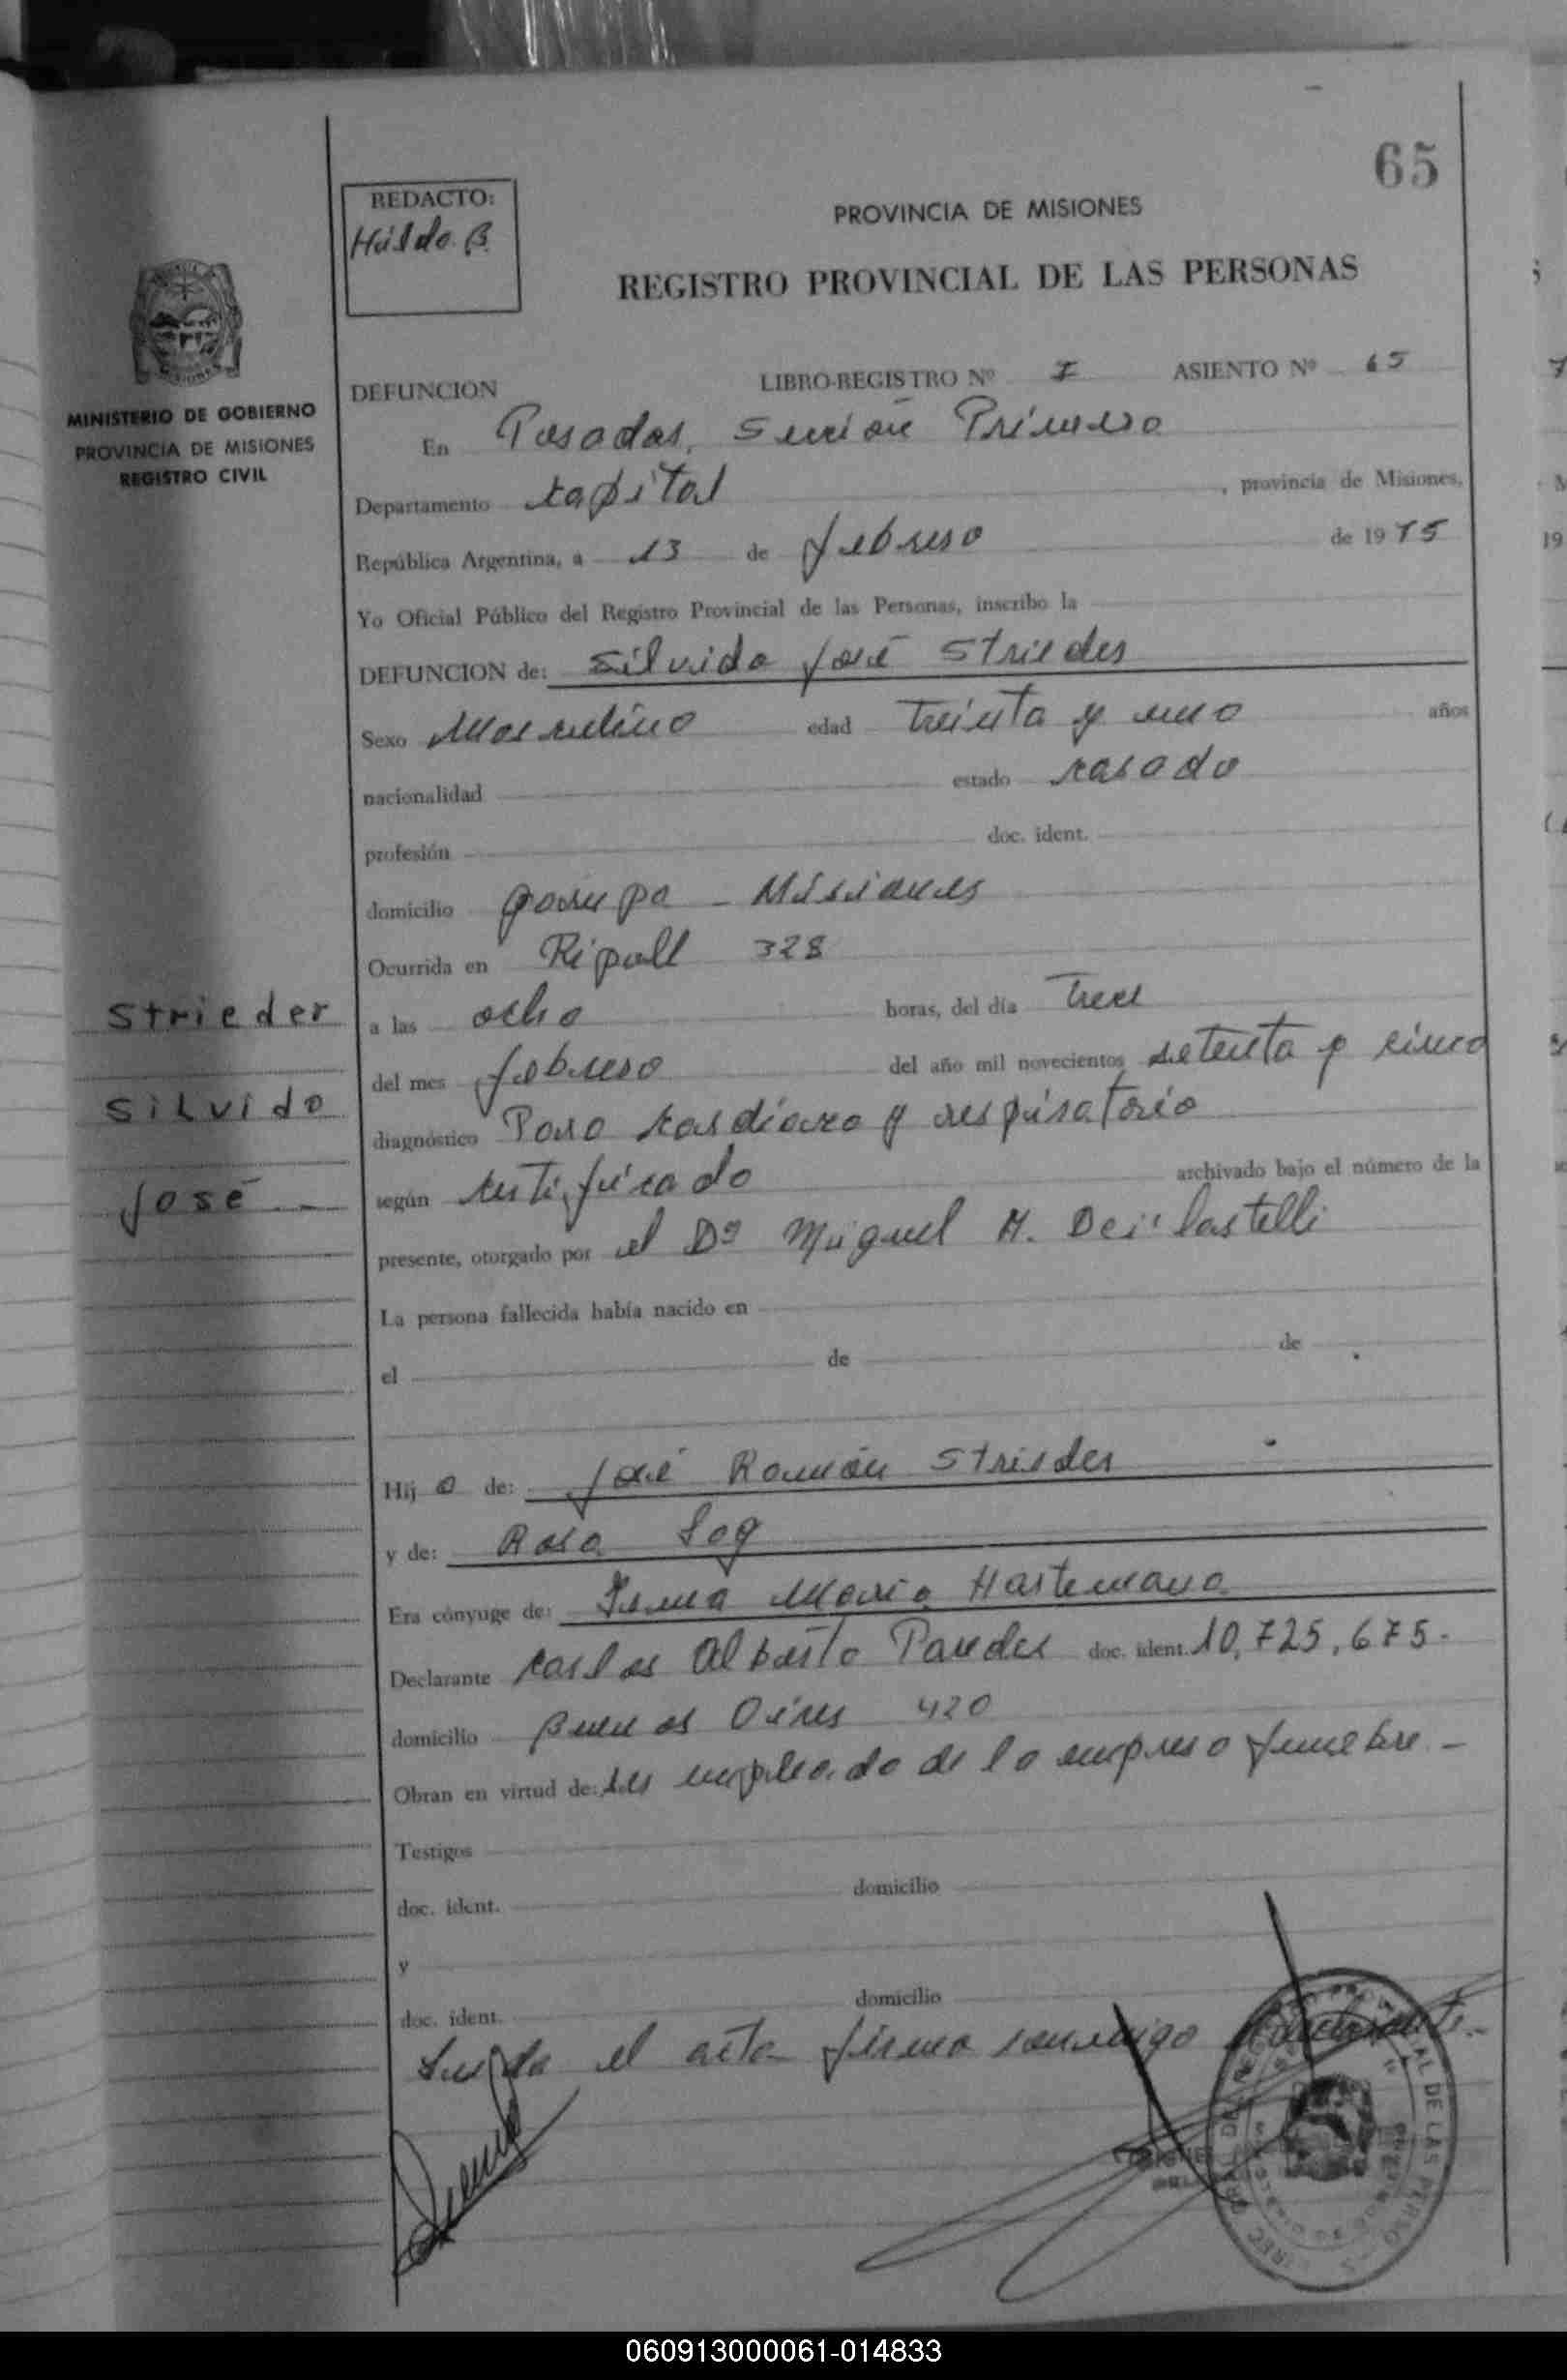 65
REDACTO:
PROVINCIA DE MISIONES
REGISTRO PROVINCIAL DE LAS PERSONAS
MINISTERIO DE GOBIERNO
PROVINCIA DE MISIONES
REGISTRO CIVIL
DEFUNCION LIBRO-REGISTRO Nº I ASIENTO Nº 65
En Posadas, Sección Primera
Departamento Capital, provincia de Misiones,
República Argentina, a 13 de febrero de 1975
Yo Oficial Público del Registro Provincial de las Personas, inscribo la
DEFUNCION de: Silvido José Strieder
Sexo Masculino edad treinta y uno años
nacionalidad estado casado
profesión doc. ident.
domicilio Garupa - Misiones
Ocurrida en Ripoll 328
a las ocho horas, del día trece
del mes febrero del año mil novecientos setenta y cinco
diagnóstico Paro cardiaco y respiratorio
según certificado archivado bajo el número de la
presente, otorgado por el Dr Miguel A.
La persona fallecida había nacido en
el de de
Strieder
Silvido
José -
Hij o de: José Román Strieder
y de: Rosa Log
Era cónyuge de: Irma María
Declarante Carlos Alberto Paredes doc. ident. 10,725,675.
domicilio Buenos Aires 420
Obran en virtud de: ser empleado de la empresa funebre. -
Testigos
doc. ident. domicilio
y
doc. ident. domicilio
Leída el acta firma conmigo el declarante.-
060913000061-014833